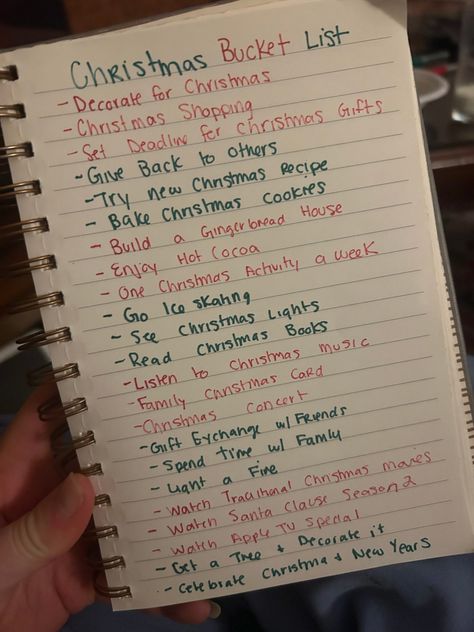 Christmas Bucket List
- Decorate for Christmas
- Christmas Shopping
- Set Deadline for Christmas Gifts
- Give Back to others
- Try new Christmas Recipe
- Bake Christmas Cookies
- Build a Gingerbread House
- Enjoy Hot Cocoa
- One Christmas Activity a week
- Go Ice skating
- See Christmas Lights
- Read Christmas Books
- Listen to Christmas music
- Family Christmas Card
- Christmas Concert
- Gift Exchange w/ Friends
- Spend time w/ Family
- Light a Fire
- Watch Traditional Christmas movies
- Watch Santa Clause Season 2
- Watch Apple TV Special
- Get a Tree + Decorate it
- Celebrate Christmas + New Years